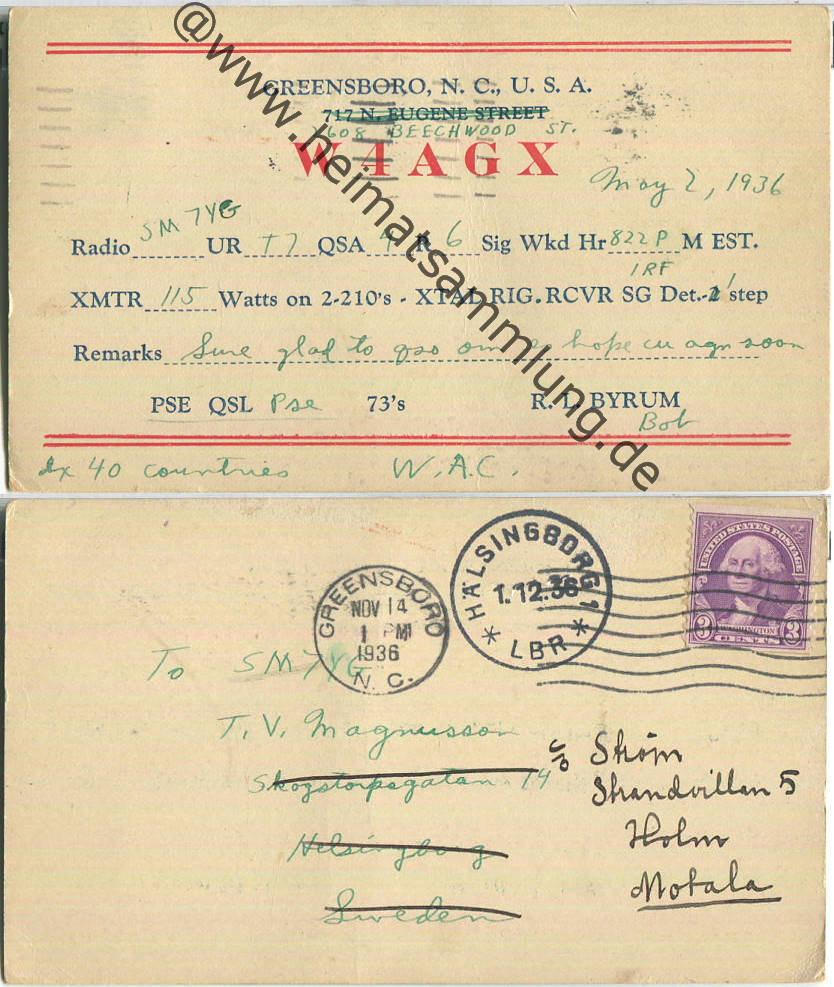 GREENSBORO, N. C., U. S. A.
717 N. EUGENE STREET
608 BEECHWOOD ST.
W4AGX
May 2, 1936
Radio SM7YG UR T7 QSA 4 R 6 Sig Wkd Hr 822P M EST.
1RF
XMTR 115 Watts on 2-210's - XTAL RIG. RCVR SG Det.-1 step
Remarks Sure glad to qso om es hope cu agn soon
PSE QSL Pse 73's R. L. BYRUM
Bob
dx 40 countries W.A.C.
@www.heimatsammlung.de
GREENSBORO
NOV 14
1 PM
1936
N. C.
HÄLSINGBORG 1
1.12.36
* LBR *
UNITED STATES POSTAGE
WASHINGTON
3 CENTS 3
To SM7YG
T. V. Magnusson
Skogstorpsgatan 14
Helsingborg
Sweden
c/o Ström
Strandvillan 5
Holm
Motala